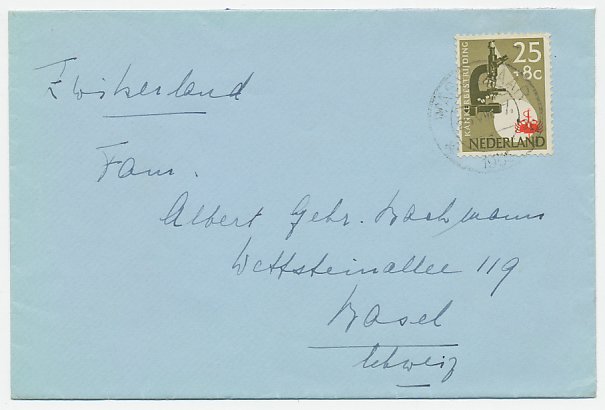 Zwitserland
25
+8c
KANKERBESTRIJDING
NEDERLAND
Fam.
Albert Gehr. Bachmann
Wettsteinallee 119
Basel
Schweiz